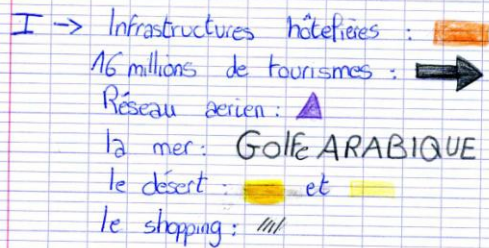 I → Infrastructures hôtelières :
16 millions de tourismes :
Réseau aerien :
la mer : GOLFE ARABIQUE
le désert : et
le shopping :